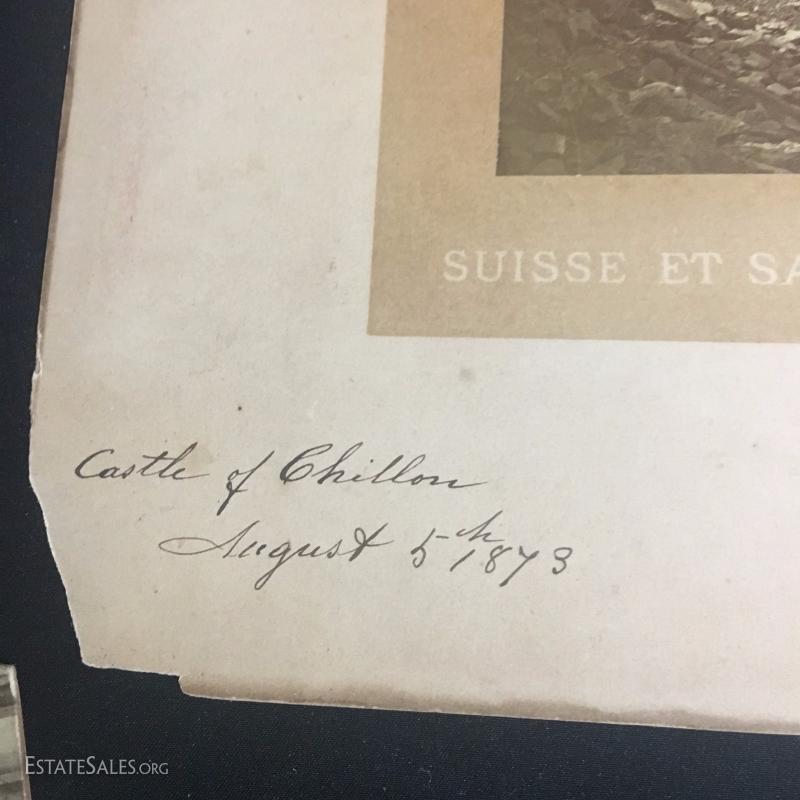 SUISSE ET SA
Castle of Chillon
August 5th 1873
ESTATESALES.ORG